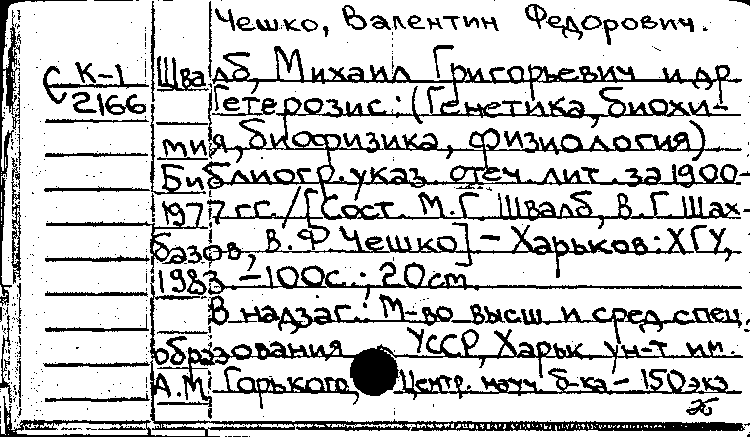 Чешко, Валентин Федорович.
К-1 Швалб, Михаил Григорьевич и др
2166 Гетерозис: (Генетика, биохи-
мия, биофизика, физиология)
Библиогр. указ. отеч. лит. за 1900-
1977 гг. / [Сост. М.Г. Швалб, В.Г. Шах-
базов, В.Ф. Чешко] - Харьков: ХГУ,
1983 - 100с.; 20см.
В надзаг.: М-во высш. и сред. спец.
образования УССР, Харьк. ун-т им.
А.М Горького, Центр. науч. б-ка - 150 экз